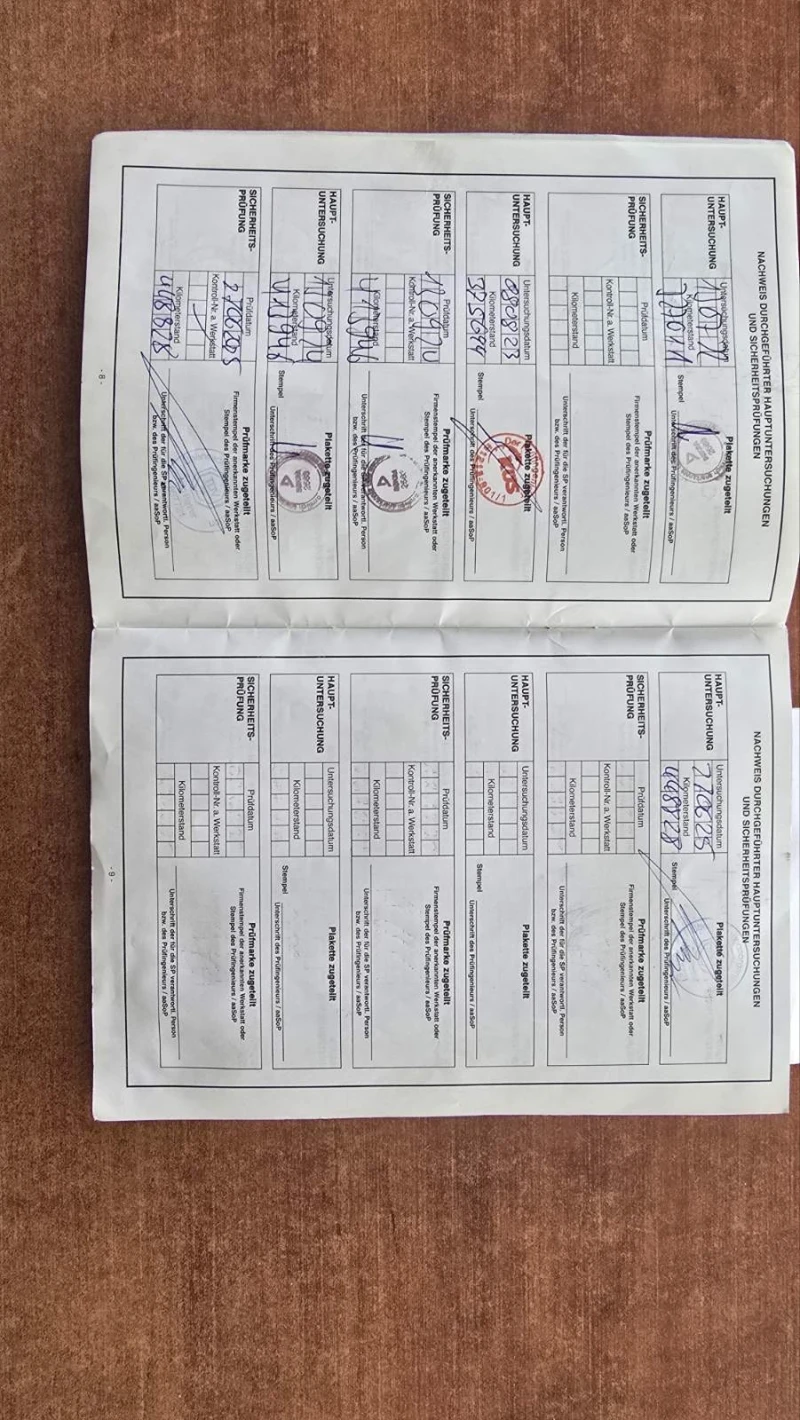 NACHWEIS DURCHGEFÜHRTER HAUPTUNTERSUCHUNGEN
UND SICHERHEITSPRÜFUNGEN
HAUPT-
UNTERSUCHUNG
Untersuchungsdatum
Kilometerstand
327011
Plakette zugeteilt
Stempel
Unterschrift des Prüfingenieurs / aaSoP
SICHERHEITS-
PRÜFUNG
Prüfdatum
Kontroll-Nr. a. Werkstatt
Kilometerstand
Prüfmarke zugeteilt
Firmenstempel der anerkannten Werkstatt oder
Stempel des Prüfingenieurs / aaSoP
Unterschrift der für die SP verantwortl. Person
bzw. des Prüfingenieurs / aaSoP
HAUPT-
UNTERSUCHUNG
Untersuchungsdatum
080823
Kilometerstand
375694
Plakette zugeteilt
Stempel
Unterschrift des Prüfingenieurs / aaSoP
SICHERHEITS-
PRÜFUNG
Prüfdatum
Kontroll-Nr. a. Werkstatt
Kilometerstand
413946
Prüfmarke zugeteilt
Firmenstempel der anerkannten Werkstatt oder
Stempel des Prüfingenieurs / aaSoP
Unterschrift der für die SP verantwortl. Person
bzw. des Prüfingenieurs / aaSoP
HAUPT-
UNTERSUCHUNG
Untersuchungsdatum
Kilometerstand
413946
Plakette zugeteilt
Stempel
Unterschrift des Prüfingenieurs / aaSoP
SICHERHEITS-
PRÜFUNG
Prüfdatum
270625
Kontroll-Nr. a. Werkstatt
Kilometerstand
Prüfmarke zugeteilt
Firmenstempel der anerkannten Werkstatt oder
Stempel des Prüfingenieurs / aaSoP
Unterschrift der für die SP verantwortl. Person
bzw. des Prüfingenieurs / aaSoP
- 8 -
NACHWEIS DURCHGEFÜHRTER HAUPTUNTERSUCHUNGEN
UND SICHERHEITSPRÜFUNGEN
HAUPT-
UNTERSUCHUNG
Untersuchungsdatum
270625
Kilometerstand
Plakette zugeteilt
Stempel
Unterschrift des Prüfingenieurs / aaSoP
SICHERHEITS-
PRÜFUNG
Prüfdatum
Kontroll-Nr. a. Werkstatt
Kilometerstand
Prüfmarke zugeteilt
Firmenstempel der anerkannten Werkstatt oder
Stempel des Prüfingenieurs / aaSoP
Unterschrift der für die SP verantwortl. Person
bzw. des Prüfingenieurs / aaSoP
HAUPT-
UNTERSUCHUNG
Untersuchungsdatum
Kilometerstand
Plakette zugeteilt
Stempel
Unterschrift des Prüfingenieurs / aaSoP
SICHERHEITS-
PRÜFUNG
Prüfdatum
Kontroll-Nr. a. Werkstatt
Kilometerstand
Prüfmarke zugeteilt
Firmenstempel der anerkannten Werkstatt oder
Stempel des Prüfingenieurs / aaSoP
Unterschrift der für die SP verantwortl. Person
bzw. des Prüfingenieurs / aaSoP
HAUPT-
UNTERSUCHUNG
Untersuchungsdatum
Kilometerstand
Plakette zugeteilt
Stempel
Unterschrift des Prüfingenieurs / aaSoP
SICHERHEITS-
PRÜFUNG
Prüfdatum
Kontroll-Nr. a. Werkstatt
Kilometerstand
Prüfmarke zugeteilt
Firmenstempel der anerkannten Werkstatt oder
Stempel des Prüfingenieurs / aaSoP
Unterschrift der für die SP verantwortl. Person
bzw. des Prüfingenieurs / aaSoP
- 9 -